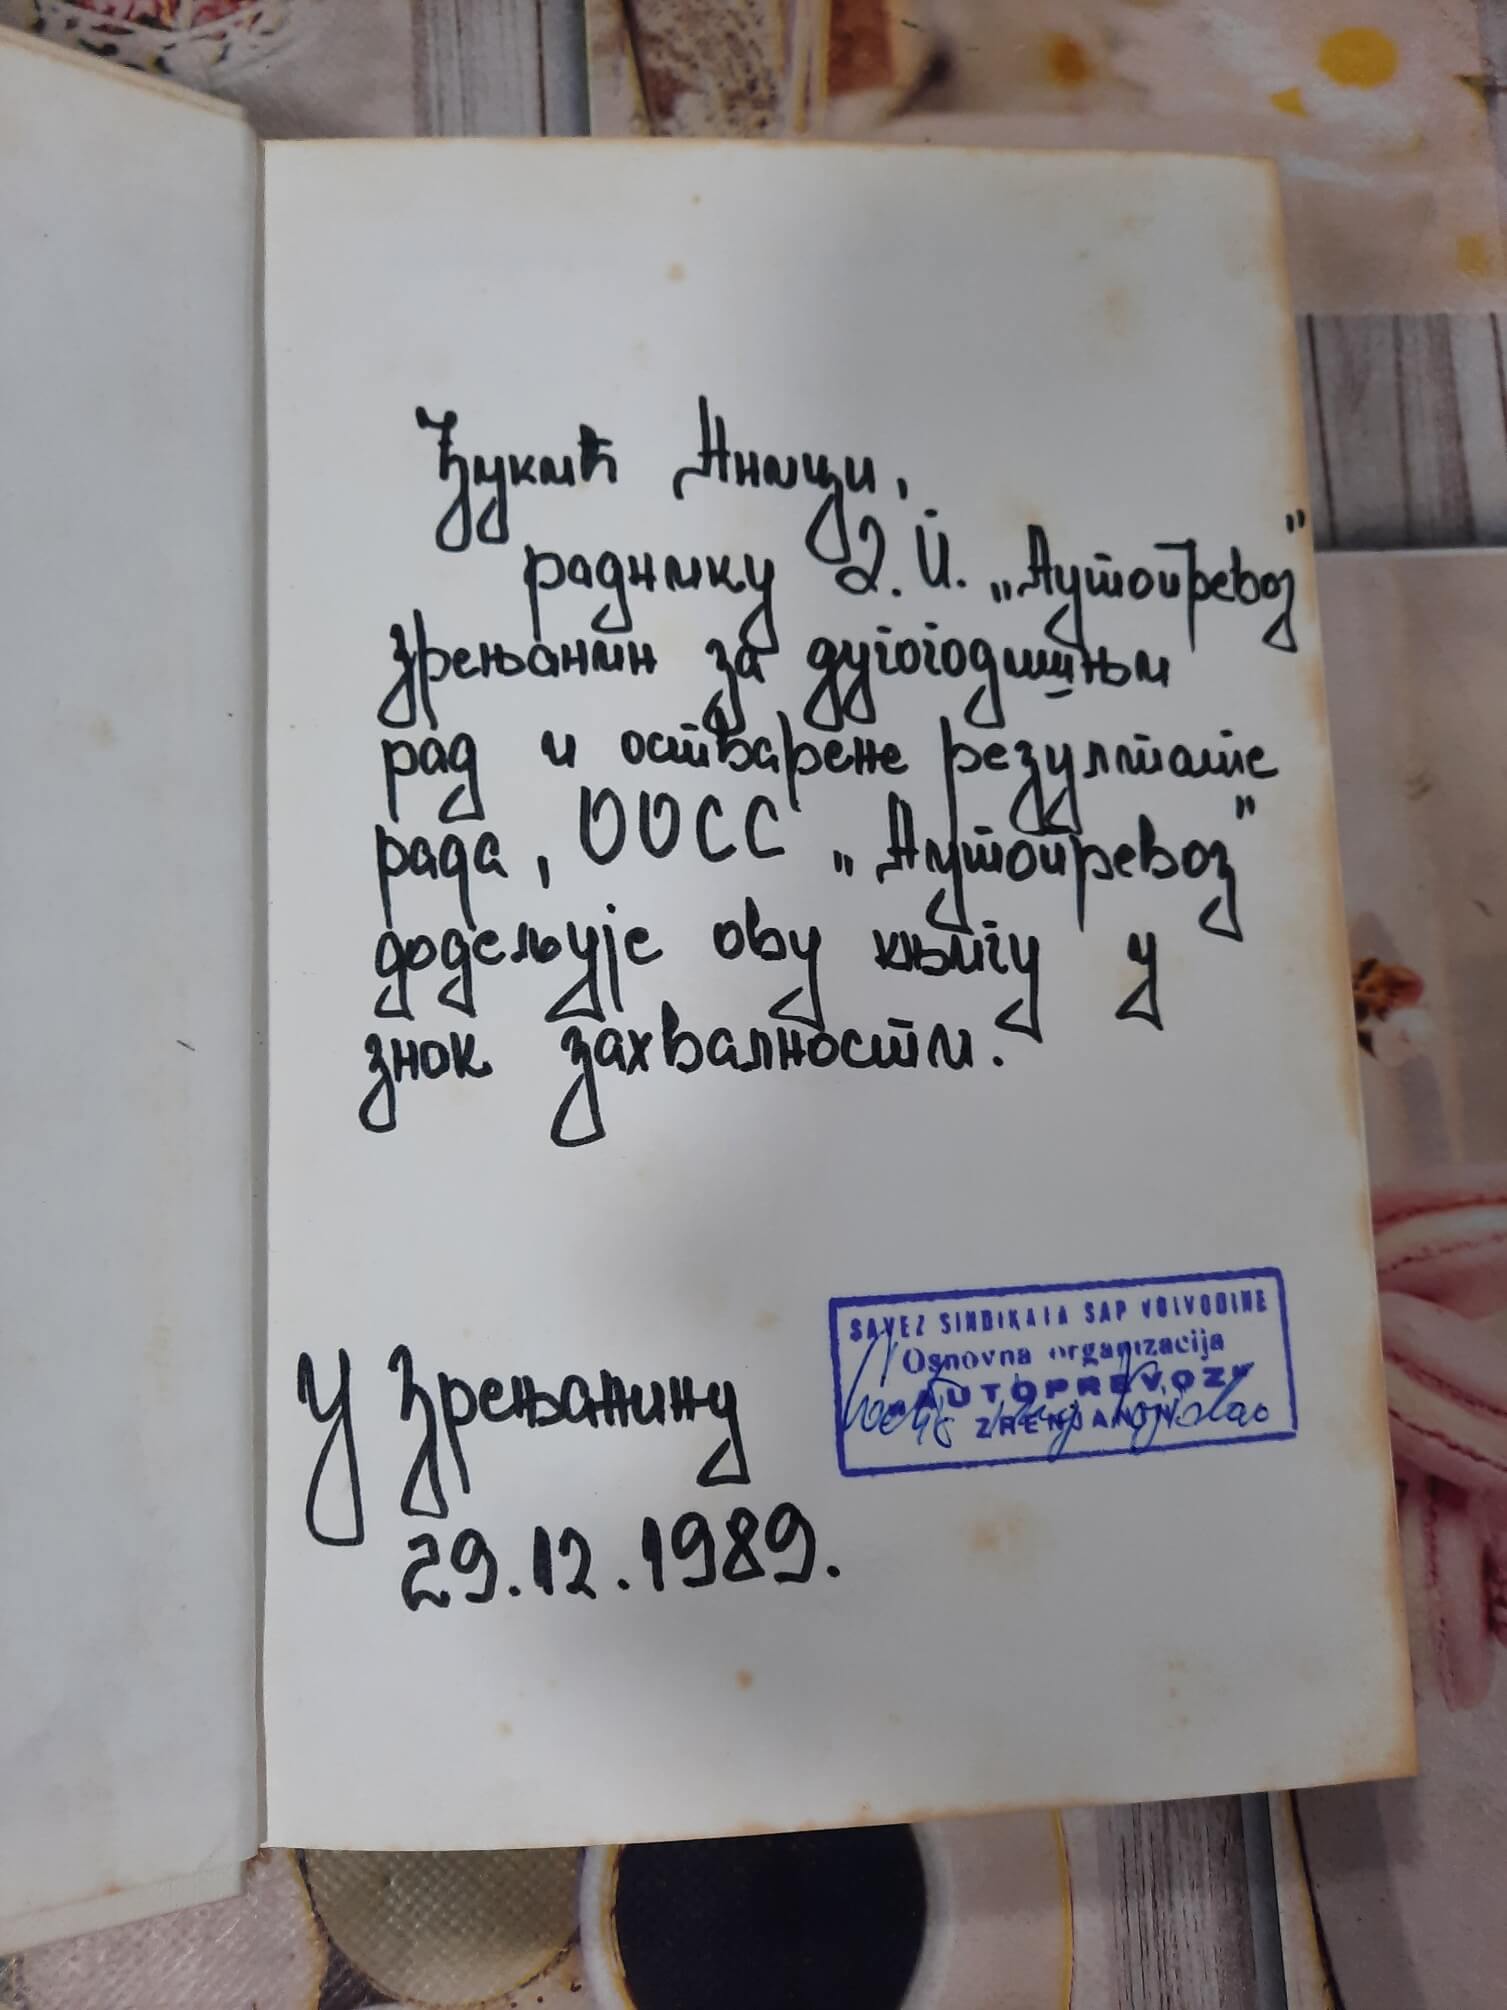 Ђукић Аници,
раднику Д.П. „Аутопревоз"
Зрењанин за дугогодишњи
рад и остварене резултате
рада, ООСС „Аутопревоз"
додељује ову књигу у
знак захвалности.
У Зрењанину
29.12.1989.
SAVEZ SINDIKATA SAP VOJVODINE
Osnovna organizacija
„AUTOPREVOZ"
ZRENJANIN